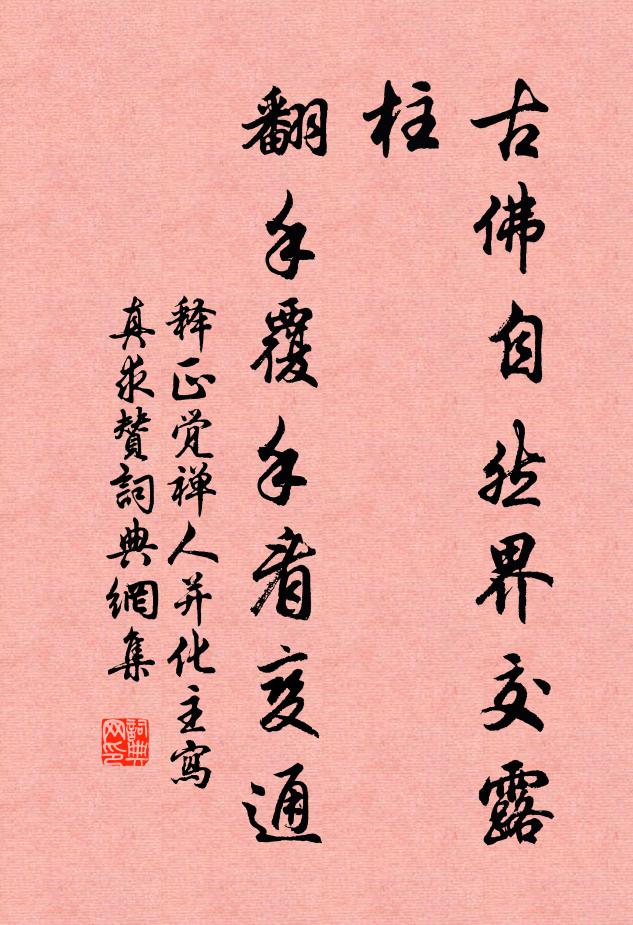 古佛自然界交露
柱
翻手覆手看变通
释正觉禅人并化主寫
真求賛詞典網集
詞典
网印